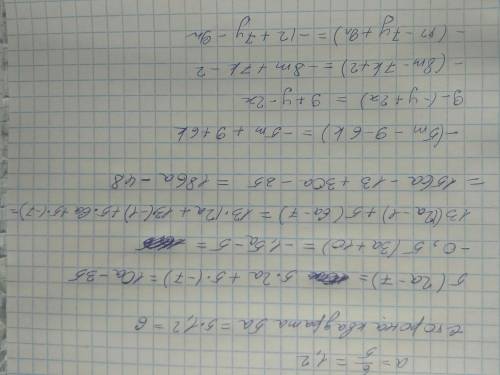 a = 6/5 = 1,2
сторона квадрата 5a = 5·1,2 = 6
5(2a-7) = 5·2a + 5·(-7) = 10a-35
-0,5(3a+10) = -1,5a - 5 =
13(12a-1)+5(6a-7) = 13·12a + 13·(-1) + 5·6a+5·(-7) =
= 156a - 13 + 30a - 35 = 186a - 48
-(5m - 9 - 6k) = -5m + 9 + 6k
9-(-y+2x) = 9+y-2x
-(8m-7k+2) = -8m+7k-2
-(12-7y+9n) = -12+7y-9n